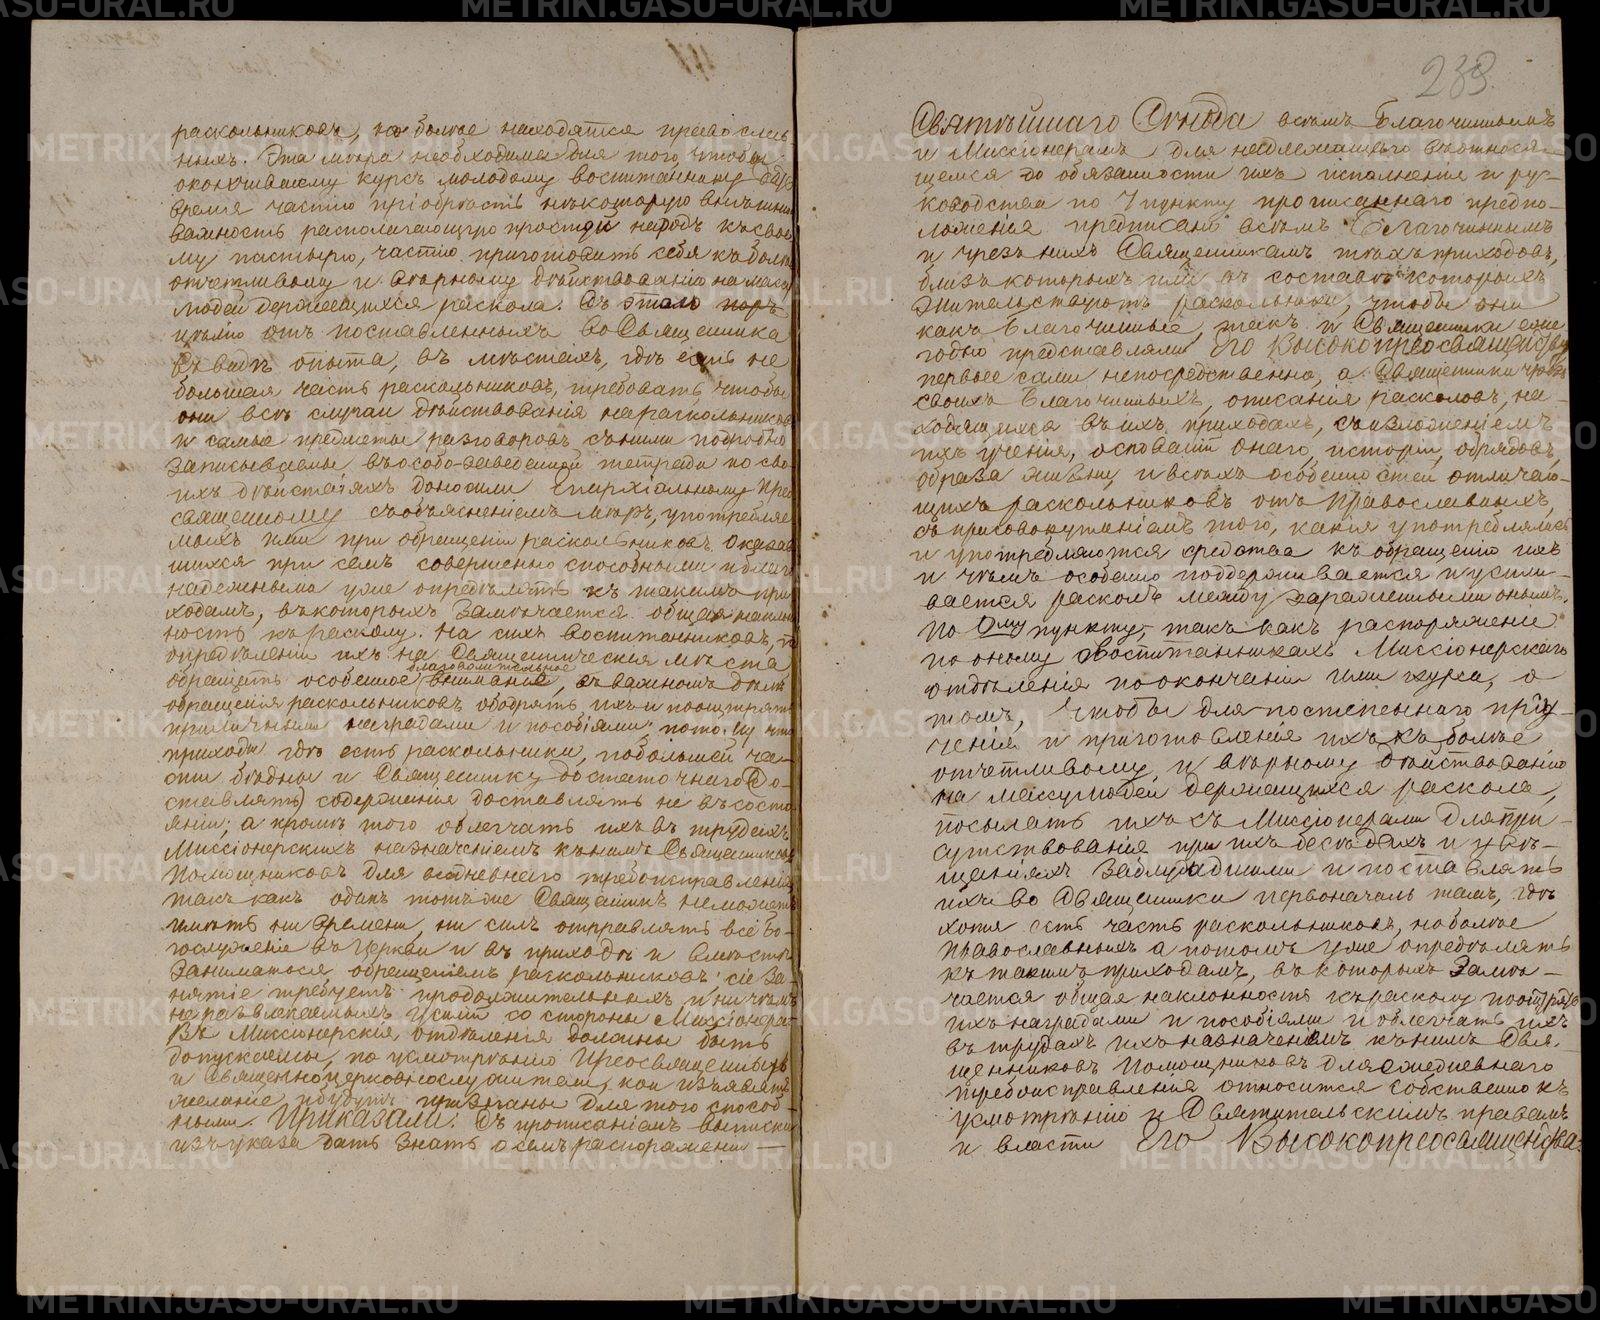 раскольниковъ, но болѣе находятся православ-
ныхъ. Эта мѣра необходима для того, чтобы
окончившему курсъ молодому воспитаннику
время частію пріобрѣсть нѣкоторую внѣшнюю
важность располагающую простой народъ къ свое-
му пастырю, частію приготовить себя къ болѣе
отчетливому и вѣрному дѣйствованію на массу
людей держащихся раскола. Въ этой порѣ
прямо отъ поставленныхъ во Священника
въ видѣ опыта, въ мѣстахъ, гдѣ есть не
большая часть раскольниковъ, требовать, чтобы
они всѣ случаи дѣйствованія на раскольниковъ
и самые предметы разговоровъ съ ними подробно
записывали въ особо-заведенной тетради и о сво-
ихъ дѣйствіяхъ доносили Епархіальному Прео-
священному съ объясненіемъ мѣръ, употребляе-
мыхъ ими при обращеніи раскольниковъ. Оказав-
шихся при семъ совершенно способными и благо-
надежными уже опредѣлять къ такимъ при-
ходамъ, въ которыхъ замѣчается общая наклон-
ность къ расколу. На сихъ воспитанниковъ, по
опредѣленіи ихъ на Священническія мѣста
обращать особенное благоволительное вниманіе, въ важномъ дѣлѣ
обращенія раскольниковъ ободрять ихъ и поощрять
приличными наградами и пособіями; потому что
приходы гдѣ есть раскольники, по большей ча-
сти бѣдны и Священнику достаточнаго (до-
ставлять) содержанія доставлять не въ состо-
яніи; а кромѣ того облегчать ихъ въ трудахъ
Миссіонерскихъ назначеніемъ къ нимъ Священниковъ
Помощниковъ для вседневнаго требоисправленія
такъ какъ одинъ тотъ же Священникъ не можетъ
имѣть ни времени, ни силъ отправлять всё Бо-
гослуженіе въ Церкви и въ приходѣ и вмѣстѣ
заниматься обращеніемъ раскольниковъ; сіе за-
нятіе требуетъ продолжительныхъ и ничѣмъ
не развлекаемыхъ усилій со стороны Миссіонера.
Въ Миссіонерскія отдѣленія должны быть
допускаемы, по усмотрѣнію Преосвященныхъ
и Священноцерковнослужители, кои изъявятъ
желаніе и будутъ признаны для того способ-
ными. Приказали: Съ прописаніемъ выписки
изъ указа дать знать о семъ распоряженіи
238.
Святѣйшаго Сѵнода всѣмъ Благочиннымъ
и Миссіонерамъ для надлежащаго въ относя-
щемся до обязанности ихъ исполненія и ру-
ководства по 7 пункту прописаннаго предпо-
ложенія предписать всѣмъ Благочиннымъ
и чрезъ нихъ Священникамъ тѣхъ приходовъ,
близъ которыхъ или въ составѣ которыхъ
жительствуютъ раскольники, чтобы они
какъ Благочинные, такъ и Священники еже-
годно представляли Его Высокопреосвященству
первые сами непосредственно, а Священники чрезъ
своихъ Благочинныхъ, описанія расколовъ, на-
ходящихся въ ихъ приходахъ, съ изложеніемъ
ихъ ученія, основаній онаго, исторіи, обрядовъ,
образа жизни и всѣхъ особенностей отличаю-
щихъ раскольниковъ отъ Православныхъ,
съ присовокупленіемъ того, какія употреблялись
и употребляются средства къ обращенію ихъ
и чѣмъ особенно поддерживается и усили-
вается расколъ между зараженными онымъ.
По 9му пункту, такъ какъ распоряженіе
по оному о воспитанникахъ Миссіонерскаго
отдѣленія по окончаніи ими курса, о
томъ, чтобы для постепеннаго пріу-
ченія и приготовленія ихъ къ болѣе
отчетливому и вѣрному дѣйствованію
на массу людей держащихся раскола,
посылать ихъ съ Миссіонерами для при-
сутствованія при ихъ бесѣдахъ и увѣ-
щаніяхъ заблудшими и поставлять
ихъ во Священники первоначаль тамъ, гдѣ
хотя есть часть раскольниковъ, но болѣе
Православныхъ а потомъ уже опредѣлять
къ такимъ приходамъ, въ которыхъ замѣ-
чается общая наклонность къ расколу поощрять
ихъ наградами и пособіями и облегчать ихъ
въ трудахъ ихъ назначеніемъ къ нимъ Свя-
щенниковъ Помощниковъ для ежедневнаго
требоисправленія относится собственно къ
усмотрѣнію и Святительскимъ правамъ
и власти Его Высокопреосвященства.